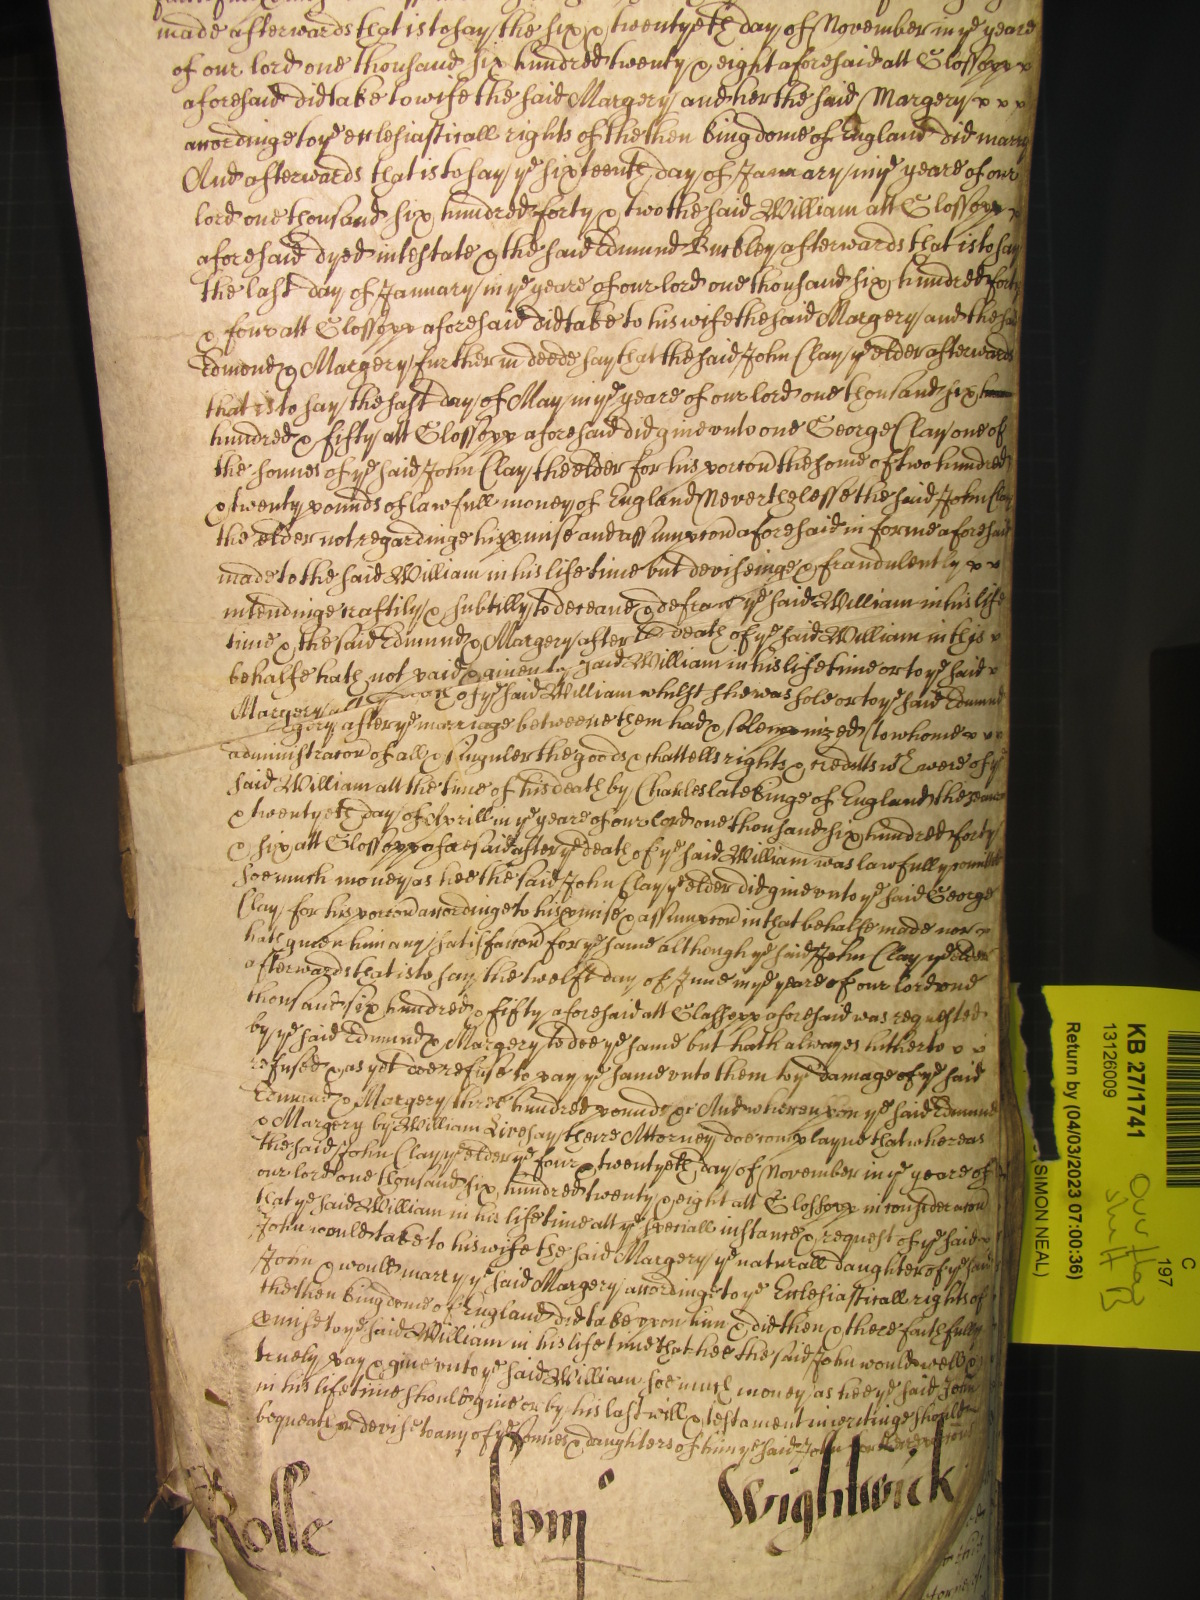 made afterwards that is to say the six & twentyeth day of November in ye yeare
of our lord one thousand six hundred twenty & eight aforesaid att Glossopp
aforesaid did take to wife the said Margery and her the said Margery
accordinge to ye ecclesiasticall rights of the then kingdome of England did marry
And afterwards that is to say ye sixteenth day of January in ye yeare of our
lord one thousand six hundred forty & two the said William att Glossopp
aforesaid dyed intestate & the said Edmund Buckley afterwards that is to say
the last day of January in ye yeare of our lord one thousand six hundred forty
& four att Glossopp aforesaid did take to his wife the said Margery and the said
Edmond & Margery further in deede say that the said John Clay ye elder afterwards
that is to say the last day of May in ye yeare of our lord one thousand six
hundred & fifty att Glossopp aforesaid did give unto one George Clay one of
the sonnes of ye said John Clay the elder for his porcon the some of two hundred
& twenty pounds of lawfull money of England Neverthelesse the said John Clay
the elder not regardinge his pmise and assumpcon aforesaid in forme aforesaid
made to the said William in his life time but deviseinge & fraudulently
intendinge craftily & subtilly to deceave & defraud ye said William in his life
time & the said Edmund & Margery after death of ye said William in this
behalfe hath not paid said William in his life time or to ye said
Margery of ye said William whilst she was sole or to ye said Edmund
after ye marriage betweene them had & solempnized (to whome
administracon of all & singuler the goods & chattells rights & creditts wch were of ye
said William att the time of his death by Charles late kinge of England the
& twentyeth day of Aprill in ye yeare of our lord one thousand six hundred forty
& six att Glossopp aforesaid after ye death of ye said William was lawfully
soe much money as hee the said John Clay ye elder did give unto ye said George
Clay for his porcon accordinge to his pmise & assumpcon in that behalfe made nor
hath given him any satisfaccon for ye same although ye said John Clay ye elder
afterwards that is to say the twelft day of June in ye yeare of our lord one
thousand six hundred & fifty aforesaid att Glossopp aforesaid was requested
by ye said Edmund & Margery to doe ye same but hath alwayes hitherto
refused & as yet doe refuse to pay ye same unto them to ye damage of ye said
Edmund & Margery three hundred pounds And whereupon ye said Edmund
& Margery by William Livesay theire Attorney doe complayne that whereas
the said John Clay ye elder ye four & twentyeth day of November in ye yeare of
our lord one thousand six hundred twenty & eight att Glossopp in consideracon
that ye said William in his life time att ye speciall instance & request of ye said
John would take to his wife the said Margery ye naturall daughter of ye said
John & would marry ye said Margery accordinge to ye Ecclesiasticall rights of
the then kingdome of England did take upon him & did then & there faithfully
pmise to ye said William in his life time that hee the said John would well &
truely pay & give unto ye said William soe much money as hee ye said John
in his life time should give or by his last will & testament in writinge should
bequeath or devise to any of ye sonnes & daughters of him ye said John
Rolle
Wightwick
KB 27/1741
13126009
Return by (04/03/2023 07:00:36)
(SIMON NEAL)
C
197